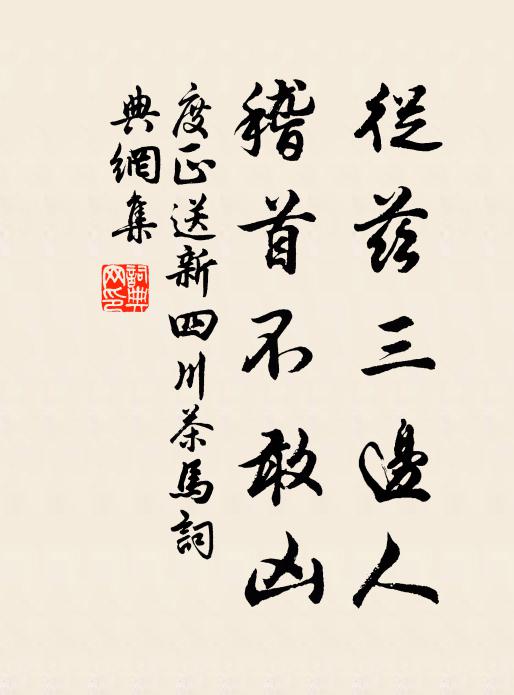 從茲三邊人
稽首不敢凶
度正送新四川茶馬詞
典網集
詞典網印